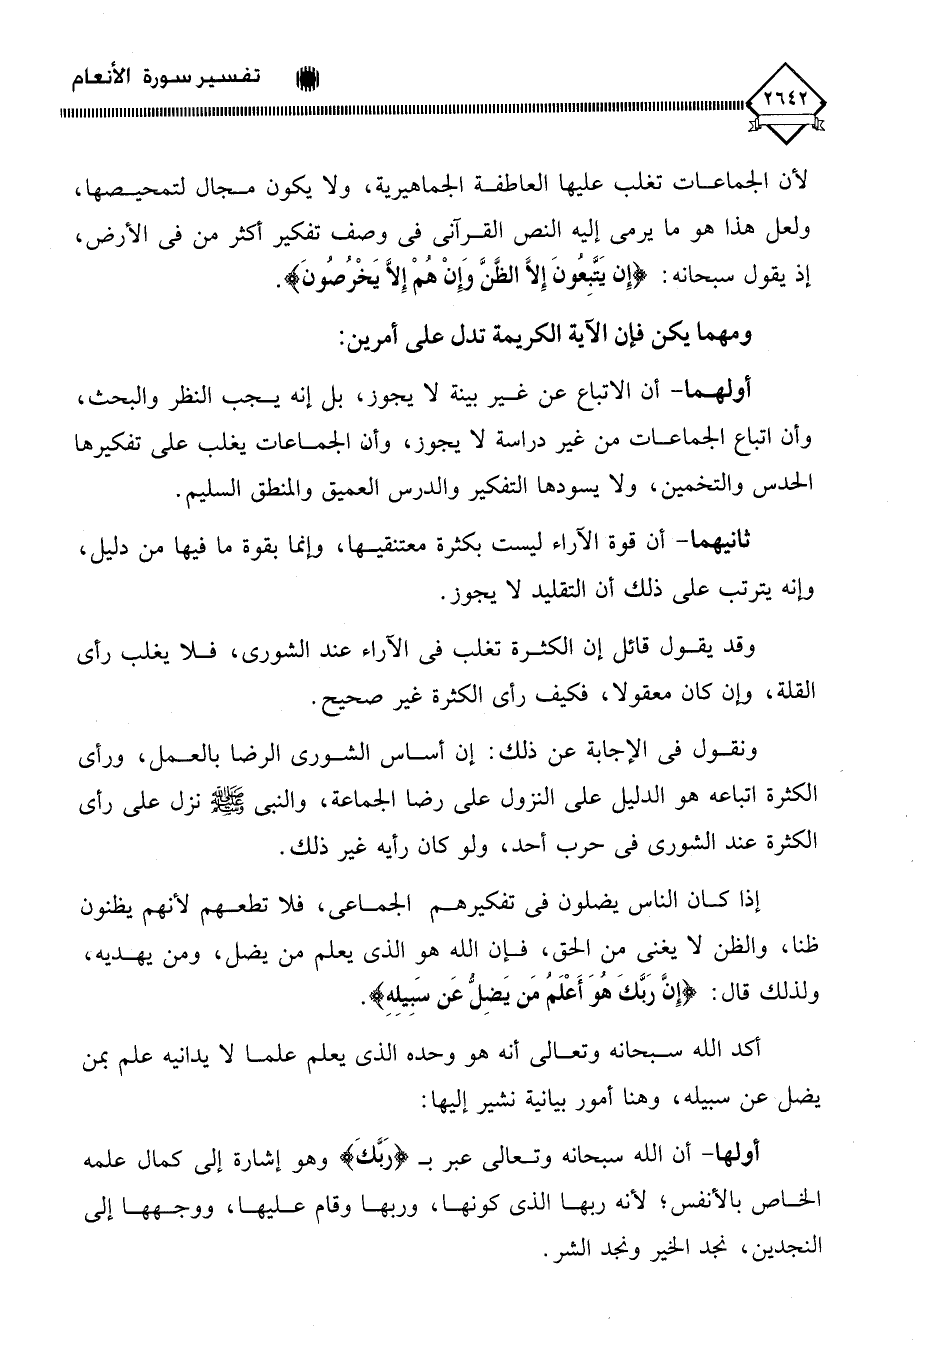 تفسير سورة الأنعام
٢٦٤٢
لأن الجماعات تغلب عليها العاطفة الجماهيرية، ولا يكون مجال لتمحيصها،
ولعل هذا هو ما يرمى إليه النص القرآنى فى وصف تفكير أكثر من فى الأرض،
إذ يقول سبحانه: ﴿إِن يَتَّبِعُونَ إِلاَّ الظَّنَّ وَإِنْ هُمْ إِلاَّ يَخْرُصُونَ﴾.
ومهما يكن فإن الآية الكريمة تدل على أمرين:
أولهما- أن الاتباع عن غير بينة لا يجوز، بل إنه يجب النظر والبحث،
وأن اتباع الجماعات من غير دراسة لا يجوز، وأن الجماعات يغلب على تفكيرها
الحدس والتخمين، ولا يسودها التفكير والدرس العميق والمنطق السليم.
ثانيهما- أن قوة الآراء ليست بكثرة معتنقيها، وإنما بقوة ما فيها من دليل،
وإنه يترتب على ذلك أن التقليد لا يجوز.
وقد يقول قائل إن الكثرة تغلب فى الآراء عند الشورى، فلا يغلب رأى
القلة، وإن كان معقولا، فكيف رأى الكثرة غير صحيح.
ونقول فى الإجابة عن ذلك: إن أساس الشورى الرضا بالعمل، ورأى
الكثرة اتباعه هو الدليل على النزول على رضا الجماعة، والنبى ﷺ نزل على رأى
الكثرة عند الشورى فى حرب أحد، ولو كان رأيه غير ذلك.
إذا كان الناس يضلون فى تفكيرهم الجماعى، فلا تطعهم لأنهم يظنون
ظنا، والظن لا يغنى من الحق، فإن الله هو الذى يعلم من يضل، ومن يهديه،
ولذلك قال: ﴿إِنَّ رَبَّكَ هُوَ أَعْلَمُ مَن يَضِلُّ عَن سَبِيلِهِ﴾.
أكد الله سبحانه وتعالى أنه هو وحده الذى يعلم علما لا يدانيه علم بمن
يضل عن سبيله، وهنا أمور بيانية نشير إليها:
أولها- أن الله سبحانه وتعالى عبر بـ ﴿رَبَّكَ﴾ وهو إشارة إلى كمال علمه
الخاص بالأنفس؛ لأنه ربها الذى كونها، وربها وقام عليها، ووجهها إلى
النجدين، نجد الخير ونجد الشر.